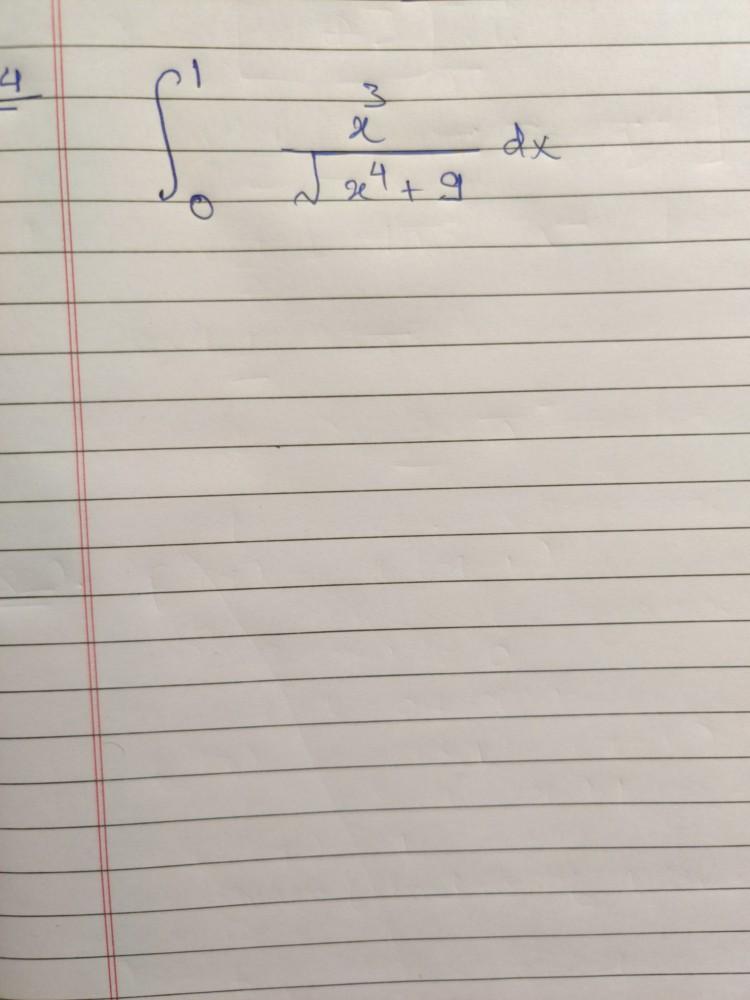 4 ∫₀¹ x³/√(x⁴+9) dx